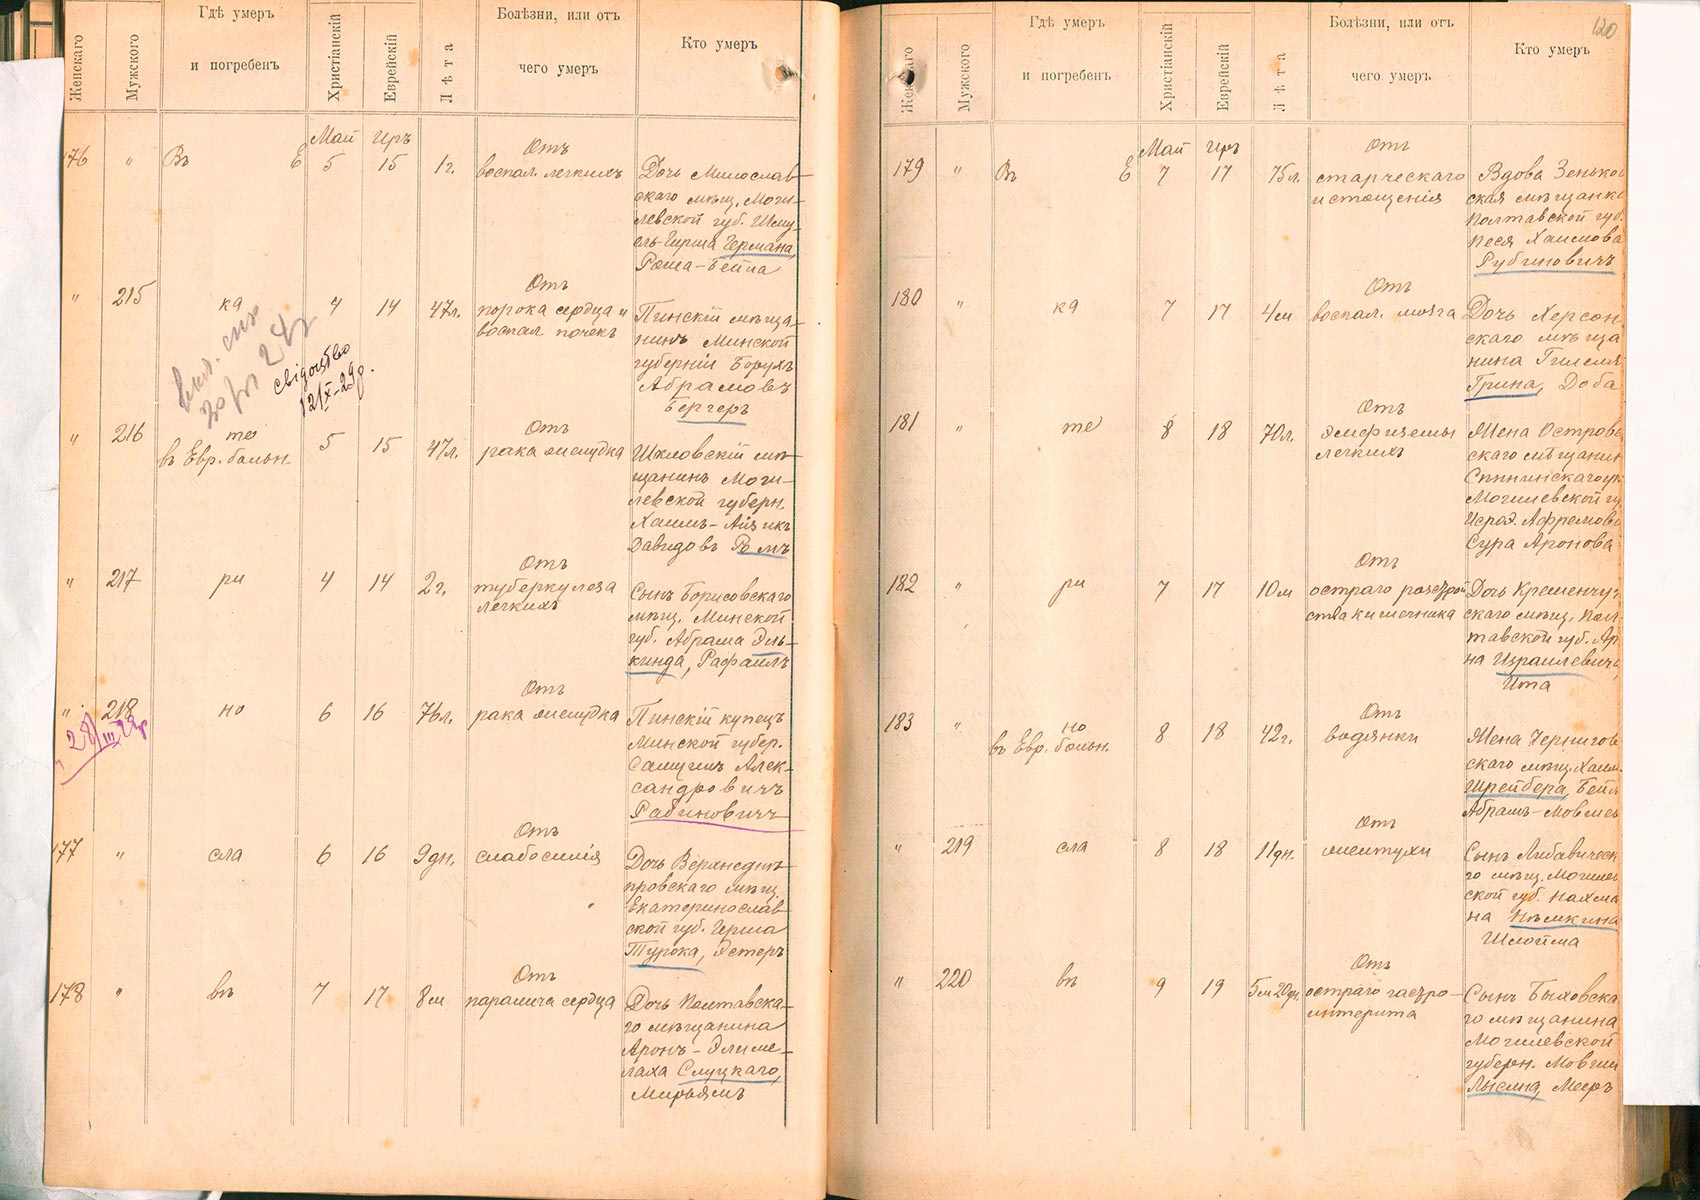 Женскаго
Мужского
Гдѣ умеръ
и погребенъ
Христіанскій
Еврейскій
Лѣта
Болѣзни, или отъ
чего умеръ
Кто умеръ
Май Иръ
176 " Въ Е 5 15 1г.
Отъ
воспал. легкихъ
Дочь Милослав-
скаго мѣщ. Моги-
левской губ. Шму-
ель-Гирша Германа,
Роша-Бейла
" 215 ка 4 14 47л.
Отъ
порока сердца и
воспал. почекъ
Пинскій мѣща-
нинъ Минской
губерніи Борухъ
Абрамовъ
Бергеръ
свідоцтво
12/X-29р.
" 216 те
въ Евр. больн. 5 15 47л.
Отъ
рака желудка
Шкловскій мѣ-
щанинъ Моги-
левской губерн.
Хаимъ-Айзикъ
Давидовъ Ромъ
" 217 ри 4 14 2г.
Отъ
туберкулеза
легкихъ
Сынъ Борисовскаго
мѣщ. Минской
губ. Абрама Эль-
кинда, Рафаилъ
" 218 но 6 16 76л.
28/III 23р
Отъ
рака желудка
Пинскій купецъ
Минской губер.
Самуилъ Алек-
сандровичъ
Рабиновичъ
177 " сла 6 16 9дн.
Отъ
слабосилія
Дочь Верхнеднѣ-
провскаго мѣщ.
Екатеринослав-
ской губ. Герша
Турока, Эстеръ
178 " въ 7 17 8м
Отъ
паралича сердца
Дочь Полтавска-
го мѣщанина
Аронъ-Элиме-
лаха Слуцкаго,
Мирьямъ
120
Женскаго
Мужского
Гдѣ умеръ
и погребенъ
Христіанскій
Еврейскій
Лѣта
Болѣзни, или отъ
чего умеръ
Кто умеръ
Май Иръ
179 " Въ Е 7 17 75л.
Отъ
старческаго
истощенія
Вдова Зеньков
ская мѣщанка
Полтавской губ.
Песя Хаимова
Рубиновичъ
180 " ка 7 17 4м
Отъ
воспал. мозга
Дочь Херсон-
скаго мѣща
нина Гилеля
Грина, Доба
181 " те 8 18 70л.
Отъ
эмфиземы
легкихъ
Жена Островс
скаго мѣщанин
Могилевской гу
Исраэ. Афремова
Сура Аронова
182 " ри 7 17 10м
Отъ
остраго разстрой
ства кишечника
Дочь Кременчуг
скаго мѣщ. Пол-
тавской губ. Ар
на Израилевича,
Ита
183 " но
въ Евр. больн. 8 18 42г.
Отъ
водянки
Жена Чернигов
скаго мѣщ. Хаим.
Шрейбера, Бейл
Абрамъ-Мовшев
" 219 сла 8 18 11дн.
Отъ
желтухи
Сынъ Любавическ
го мѣщ. Могилев
ской губ. Нахма
на Нѣмкина
Шлойма
" 220 въ 9 19 5м 20дн.
Отъ
остраго гастро-
энтерита
Сынъ Быховска
го мѣщанина
Могилевской
губерн. Мовши
Лысина, Мееръ